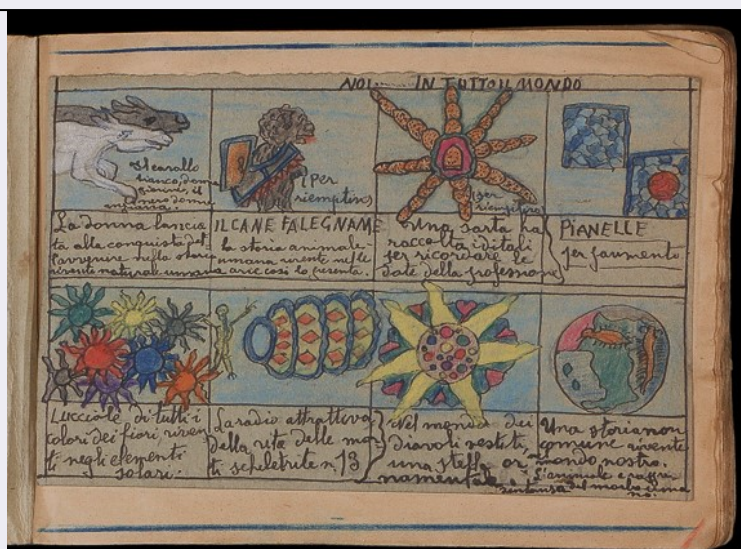 NOI........ IN TUTTO IL MONDO
Il cavallo
bianco, donna
giovine, il
nero donna
anziana.
(Per
riempitivo)
(per
riempitivo)
La donna lancia
ta alla conquista del
l'avvenire nella storia
vivente naturale umana
IL CANE FALEGNAME
la storia animale-
umana vivente nelle
arie così lo presenta.
Una sarta ha
raccolta i ditali
per ricordare le
date della professione
PIANELLE
per paumento.
Lucciole di tutti i
colori dei fiori, viven
ti negli elementi
solari.
La radio attrattiva
della vita delle mor
ti scheletrite n. 13
Nel mondo dei
diavoli vestiti,
una stella or
namentale
Una storia non
comune vivente
mondo nostro.
L'animale
del morbo umano
no.